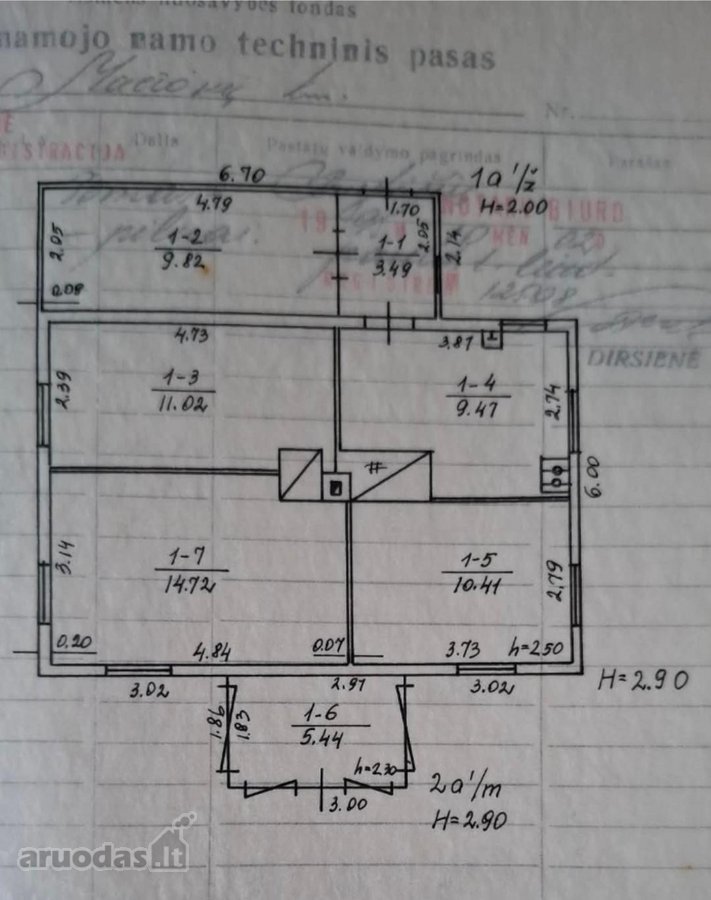 nuosavybės fondas
namojo namo techninis pasas
Nr.
Dalis
Pastatų valdymo pagrindas
Parašas
6.70
1a¹/ž
H=2.00
4.79
1.70
2.05
1-2
9.82
1-1
3.49
2.05
2.14
0.08
4.73
3.87
DIRSIENĖ
2.39
1-3
11.02
1-4
9.47
2.74
#
6.00
3.14
1-7
14.72
1-5
10.41
2.79
0.20
4.84
0.07
3.73
h=2.50
3.02
2.97
3.02
H=2.90
1.86
1.83
1-6
5.44
h=2.30
3.00
2a¹/m
H=2.90
aruodas.lt